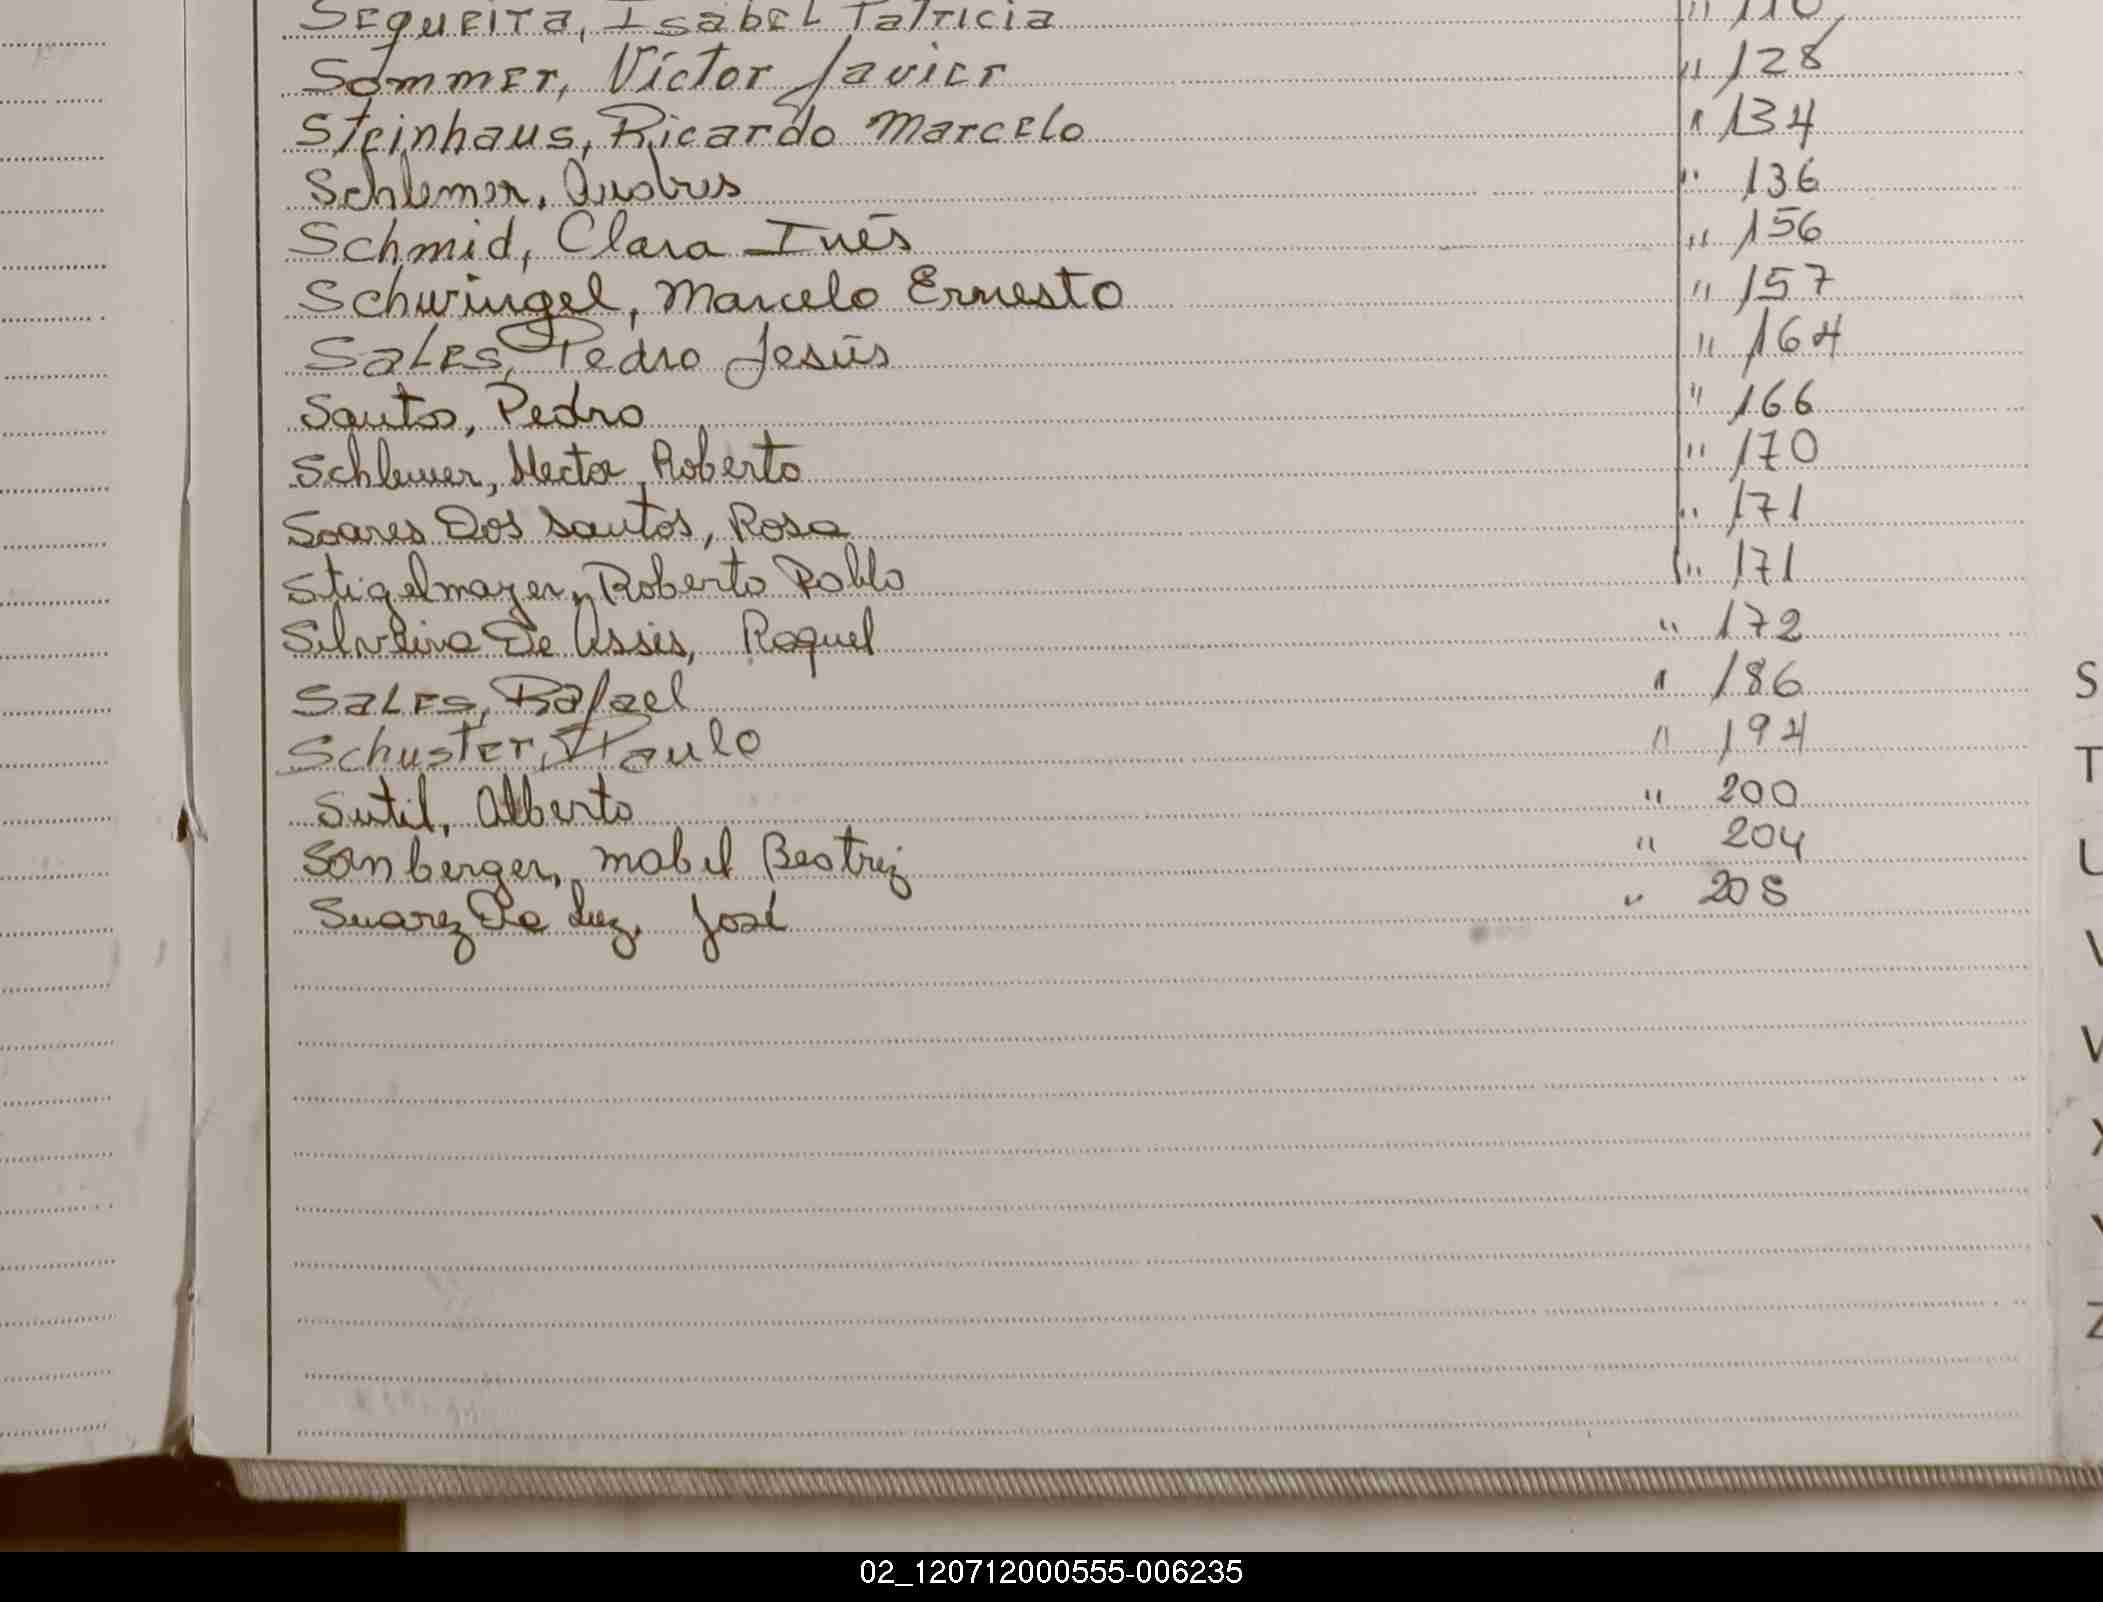 Sequeira, Isabel Patricia " 110
Sommer, Víctor Javier " 128
Steinhaus, Ricardo Marcelo " 134
Schlemer, Andres " 136
Schmid, Clara Inés " 156
Schwingel, Marcelo Ernesto " 157
Sales, Pedro Jesús " 164
Santos, Pedro " 166
Schlemer, Hector Roberto " 170
Soares Dos Santos, Rosa " 171
Stigelmayer, Roberto Pablo " 171
Silveira De Assis, Raquel " 172
Sales, Rafael " 186
Schuster, Paulo " 194
Sutil, Alberto " 200
Sonberger, Mabel Beatriz " 204
Suarez Da Luz, José " 208
S
T
U
V
X
Y
Z
02_120712000555-006235